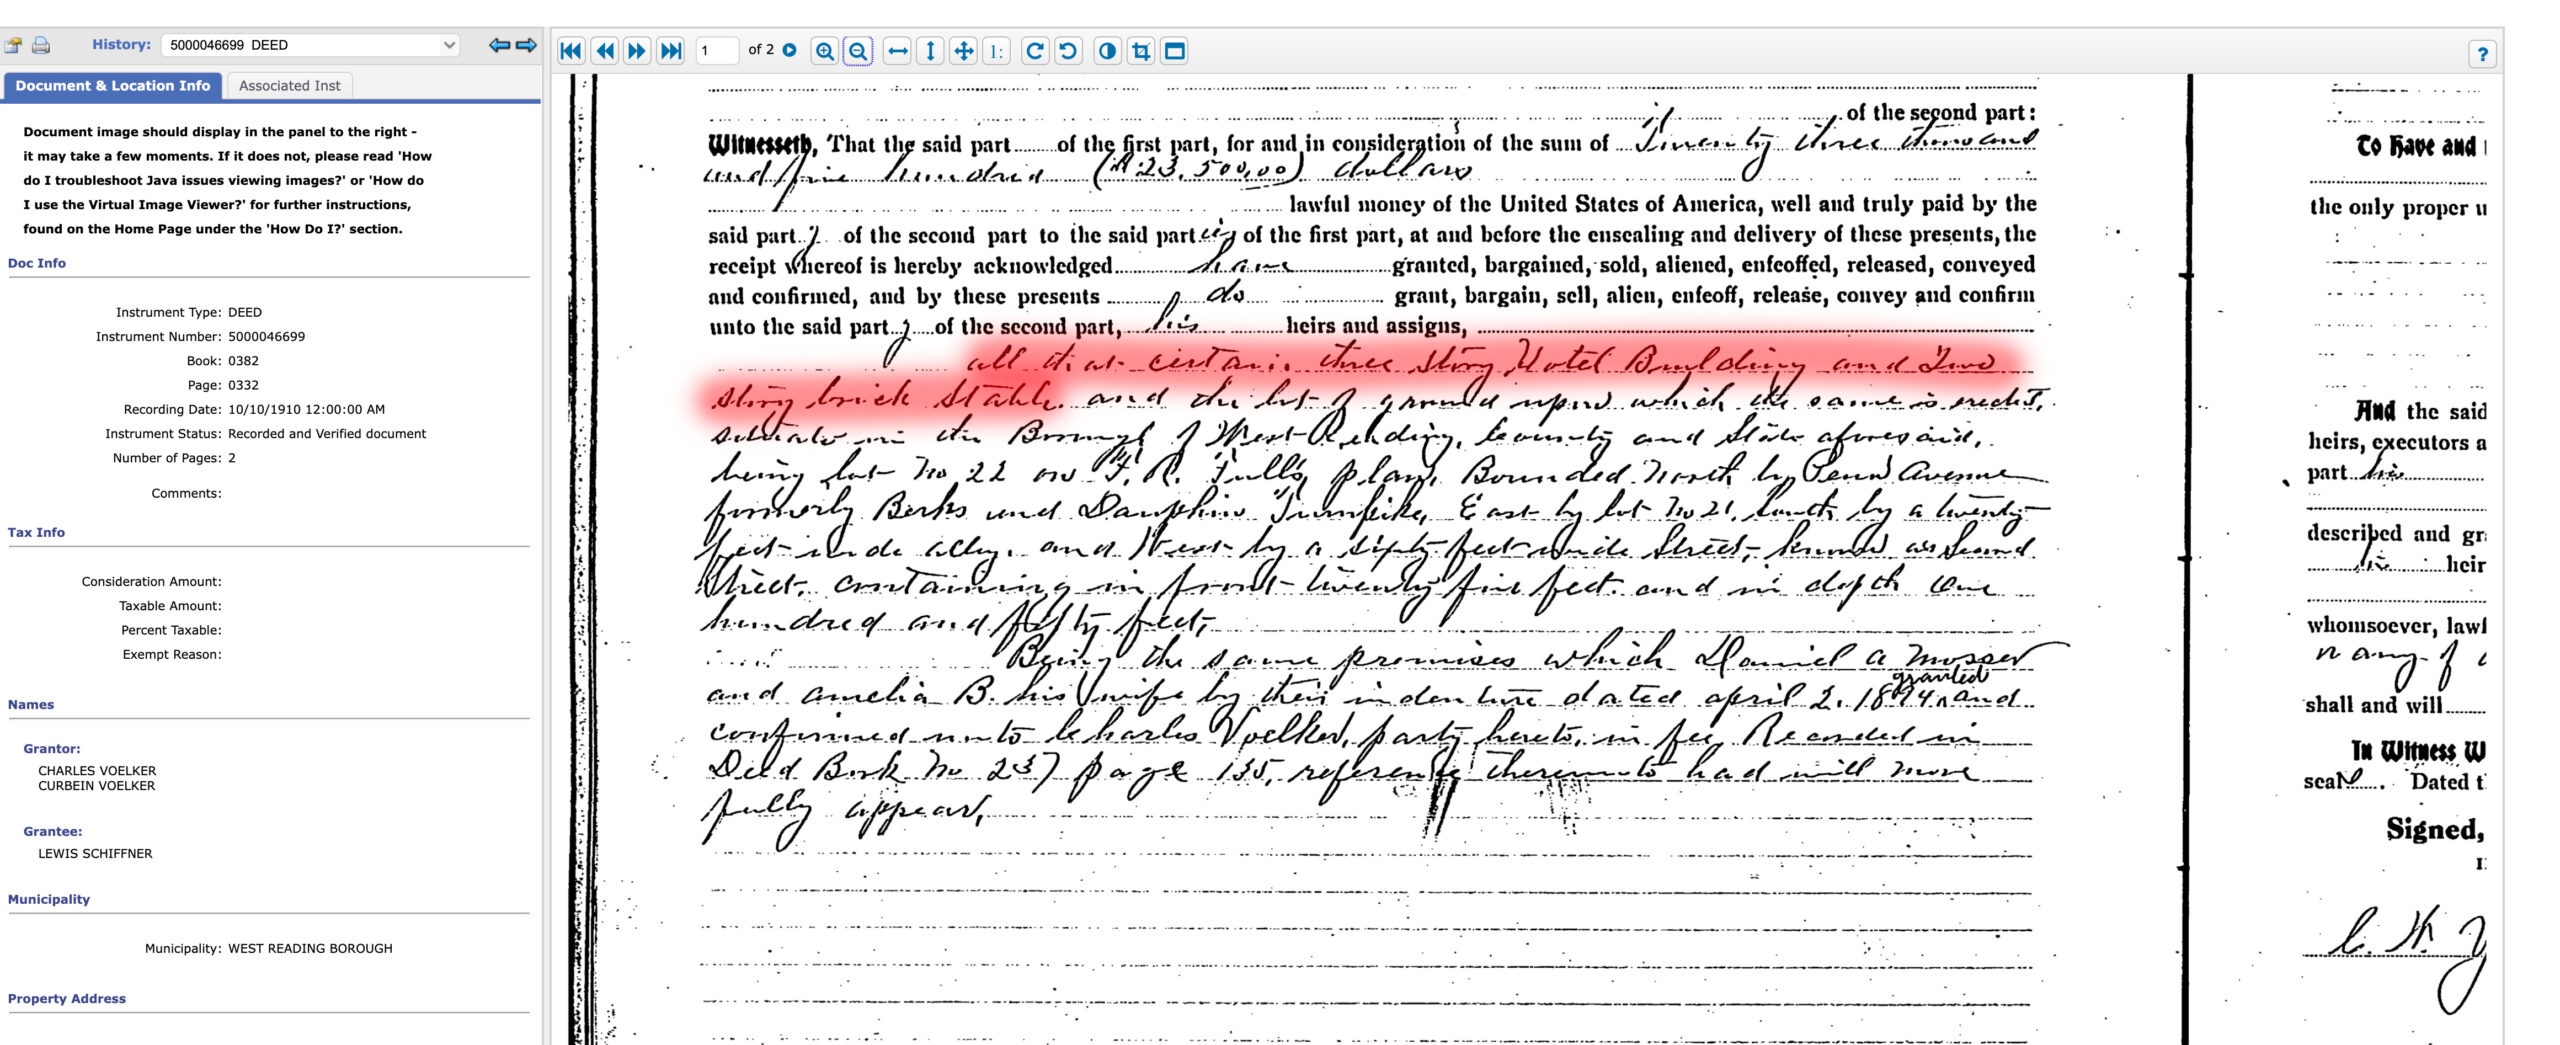 History: 5000046699 DEED
1 of 2
1:
?
Document & Location Info
Associated Inst
Document image should display in the panel to the right -
it may take a few moments. If it does not, please read 'How
do I troubleshoot Java issues viewing images?' or 'How do
I use the Virtual Image Viewer?' for further instructions,
found on the Home Page under the 'How Do I?' section.
Doc Info
Instrument Type: DEED
Instrument Number: 5000046699
Book: 0382
Page: 0332
Recording Date: 10/10/1910 12:00:00 AM
Instrument Status: Recorded and Verified document
Number of Pages: 2
Comments:
Tax Info
Consideration Amount:
Taxable Amount:
Percent Taxable:
Exempt Reason:
Names
Grantor:
CHARLES VOELKER
CURBEIN VOELKER
Grantee:
LEWIS SCHIFFNER
Municipality
Municipality: WEST READING BOROUGH
Property Address
of the second part:
Witnesseth, That the said part of the first part, for and in consideration of the sum of Twenty three thousand
and five hundred ($23,500.00) dollars
lawful money of the United States of America, well and truly paid by the
said part y of the second part to the said parties of the first part, at and before the ensealing and delivery of these presents, the
receipt whereof is hereby acknowledged have granted, bargained, sold, aliened, enfeoffed, released, conveyed
and confirmed, and by these presents do grant, bargain, sell, alien, enfeoff, release, convey and confirm
unto the said part y of the second part, his heirs and assigns,
all that certain three story Hotel Building and Two
story brick stable and the lot of ground upon which the same is erected,
situate in the Borough of West Reading, County and State aforesaid,
being lot No 22 on Plan, Bounded North by Penn Avenue
formerly Berks and Dauphin Turnpike, East by lot No 21, South by a twenty
feet wide alley, and West by a sixty feet wide Street, known as Second
Street, containing in front twenty five feet and in depth one
hundred and fifty feet,
Being the same premises which Daniel A Mosser
and Amelia B. his wife by their indenture dated April 2, 1894 granted and
confirmed unto Charles Voelker, party hereto, in fee Recorded in
Deed Book No 237 page 135, reference thereunto had will more
fully appear,
To Have and
the only proper
And the said
heirs, executors a
part his
described and gr
heir
whomsoever, lawf
n any of
shall and will
In Witness W
seal Dated t
Signed,
C. H.